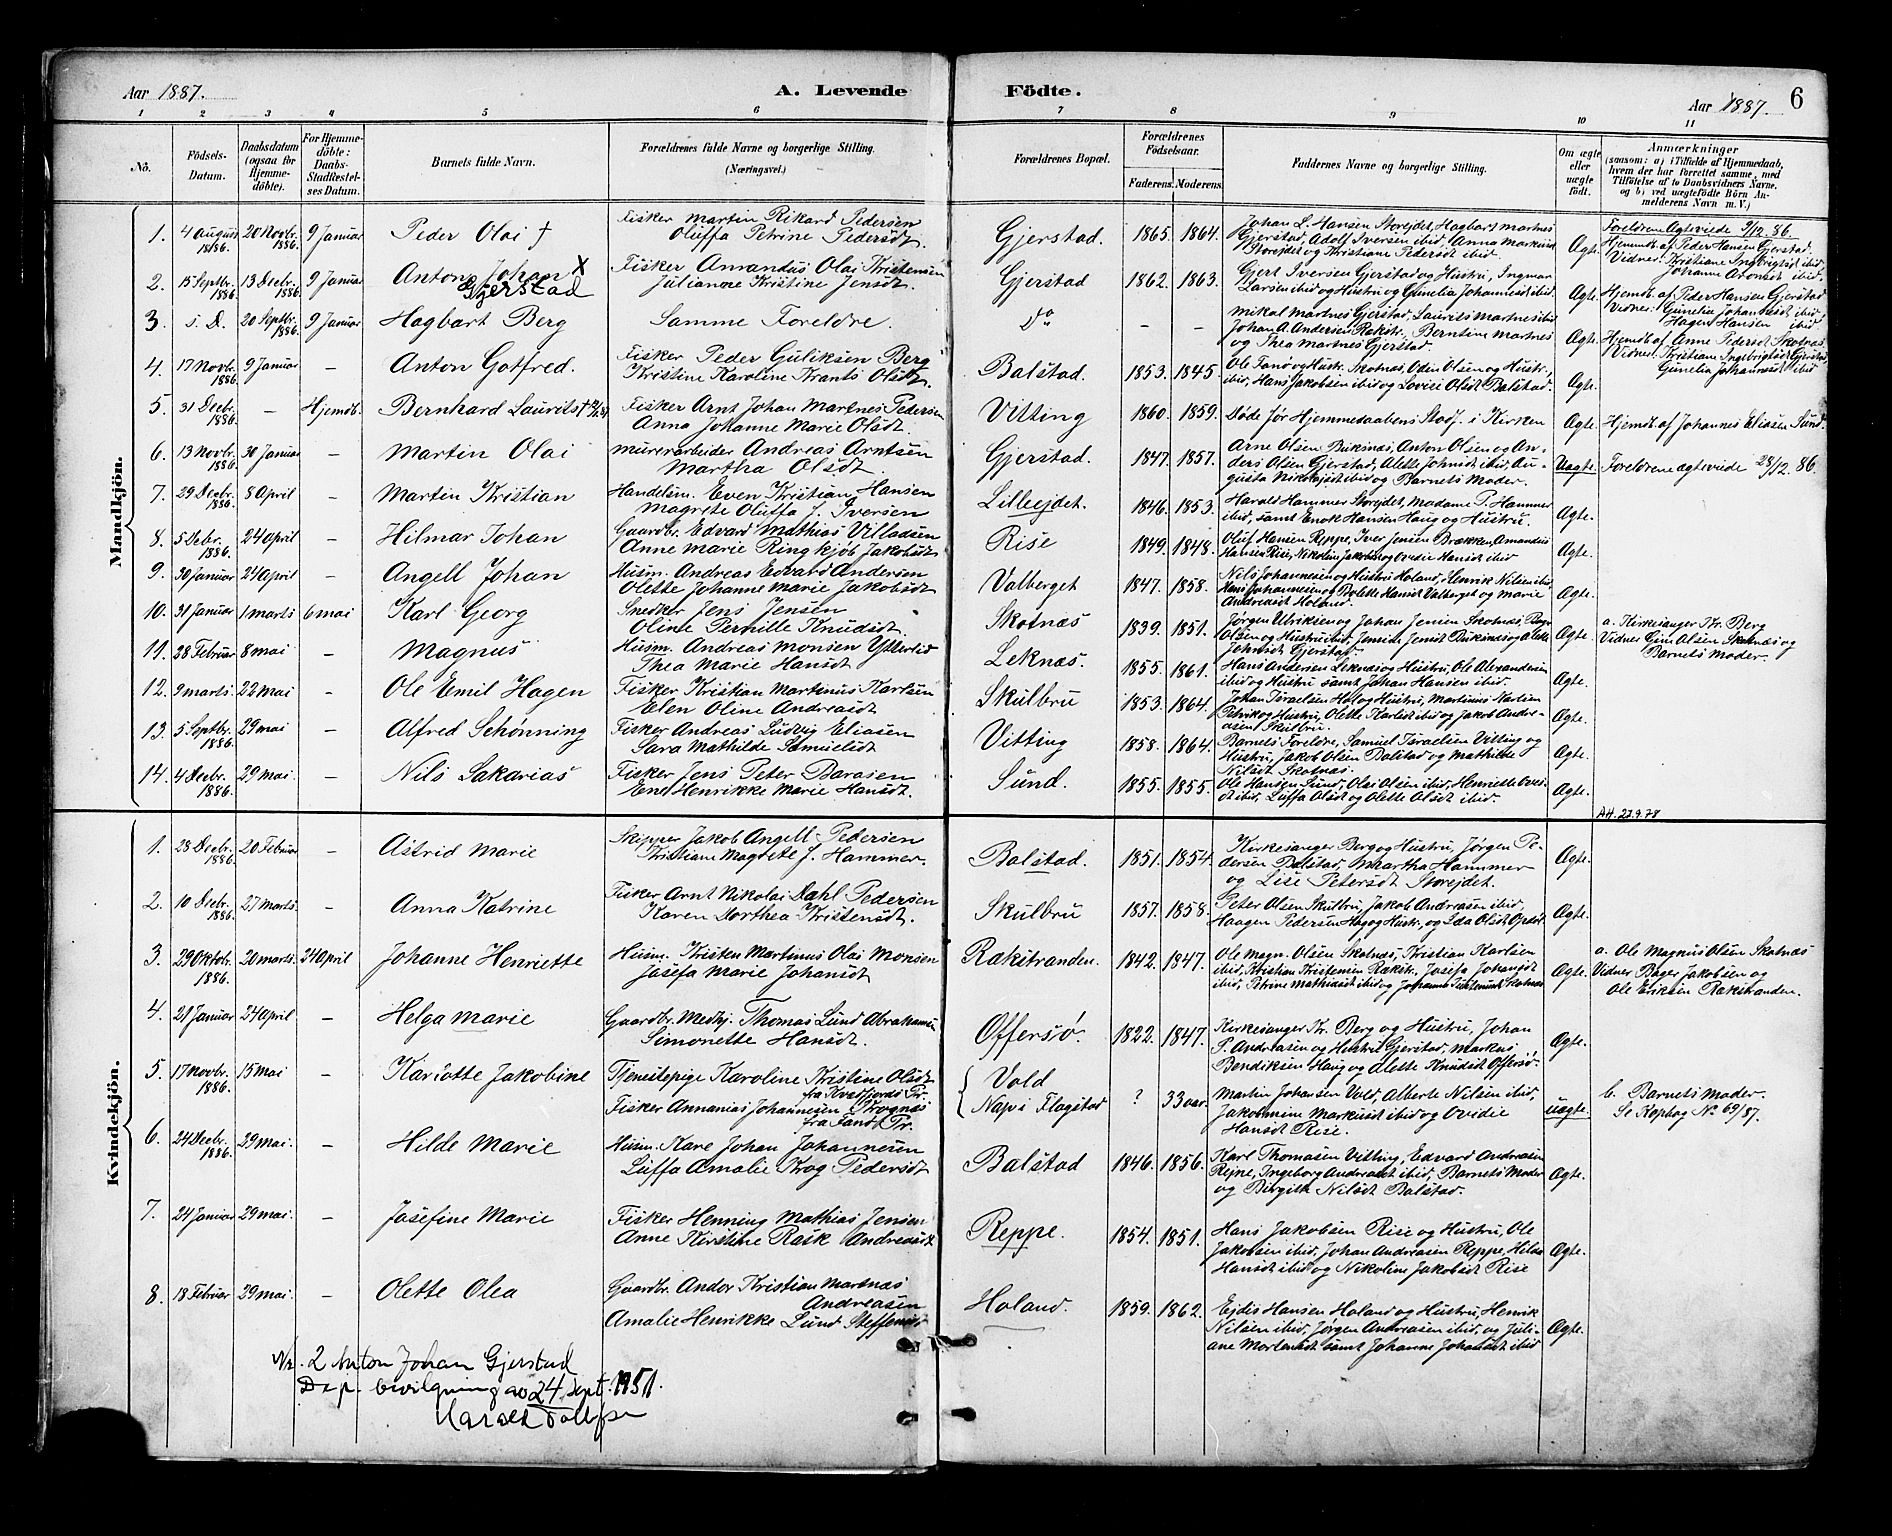 Aar 1887. A. Levende Födte. Aar 1887. 6
1 2 3 4 5 6 7 8 9 10 11
No. Födsels-Datum. Daabsdatum (ogsaa for Hjemmedöbte). For Hjemmedöbte: Daabs-Stadfæstelses Datum. Barnets fulde Navn. Forældrenes fulde Navne og borgerlige Stilling. (Næringsvei.) Forældrenes Bopæl. Forældrenes Födselsaar. Faderens. Moderens. Faddernes Navne og borgerlige Stilling. Om ægte eller uægte födt. Anmærkninger (saasom: a) i Tilfælde af Hjemmedaab, hvem der har forrettet samme, med Tilföielse af to Daabsvidners Navne, og b) ved uægtefödte Börn Anmelderens Navn m. V.)
Mandkjön.
1. 4 August 1886. 20 Novbr. 1886. 9 Januar Peder Olai † Fisker Martin Rikard Pedersen
Oluffa Petrine Pedersdt. Gjerstad. 1865. 1864. Johan L. Hansen Storejdet, Hagbart Martnes
Gjerstad, Adolf Iversen ibid, Anna Markusd
Storejdet og Kristiane Pedersdt ibid. Ægte. Foreldrene Ægteviede 9/12 86.
Hjemmd. af Peder Hansen Gjerstad,
Vidner: Kristiane Ingebrigtsdt ibid
Johanna Aronsdt ibid.
2. 15 Septbr. 1886. 13 Decbr. 1886. 9 Januar Anton Johan X
Gjerstad Fisker Amandus Olai Kristensen
Julianne Kristine Jensdt. Gjerstad 1862. 1863. Gjert Iversen Gjerstad og Hustru, Ingmar
Larsen ibid og Hustru og Gunelia Johannesdt ibid. Ægte. Hjemdt. af Peder Hansen Gjerstad
Vidner: Gunelia Johannesdt ibid
Hagen Hansen ibid
3. s. D. 20 Septbr. 1886. 9 Januar Hagbart Berg Samme Foreldre. Do – – Mikal Martnes Gjerstad, Laurits Martnes ibid
Johan A. Andersen Rækstr., Berntine Martnes
og Thea Martnes Gjerstad. Ægte. Hjemdt. af Anne Pedersdt Skotnæs.
Vidner: Kristiane Ingebrigtsdt Gjerstad,
Gunelia Johannesdt ibid
4. 17 Novbr. 1886. 9 Januar – Anton Gotfred. Fisker Peder Guliksen Berg
Kristine Karoline Krants Olsdt. Balstad. 1853. 1845. Ole Tanø og Hustr. Skotnæs, Oden Olsen og Hustr.
ibid, Hans Jakobsen ibid og Lovise Olsdt Balstad. Ægte.
5. 31 Decbr. 1886. – Hjemdt. Bernhard Laurits † Fisker Arnt Johan Martnes Pedersen
Anna Johanne Marie Olsdt. Vitting 1860. 1859. Døde før Hjemmedaabens Stadf. i Kirken Ægte. Hjemdt. af Johannes Eliasen Sund.
6. 13 Novbr. 1886. 30 Januar – Martin Olai Murerarbeider Andreas Arntsen
Martha Olsdt. Gjerstad. 1847. 1857. Arne Olsen Buksnæs, Anton Olsen og An-
ders Olsen Gjerstad, Alette Johnsdt ibid, Au-
gusta Nikolajsdt ibid og Barnets Moder. Uægte. Foreldrene ægteviede 28/12. 86.
7. 29 Decbr. 1886. 8 April – Martin Kristian Handelsm. Even Kristian Hansen
Magrete Oluffa J. Iversen. Lilleejdet. 1846. 1853. Harald Hammer Storejdet, Madame P. Hammer
ibid, samt Enok Hansen Haug og Hustru. Ægte.
8. 5 Decbr. 1886. 24 April – Hilmar Johan Gaardbr. Edvard Mathias Villadsen
Anne Marie Ringkjøb Jakobsdt Rise 1849. 1848. Oluf Hansen Reppe, Iver Jensen Brækken, Amandus
Hansen Rise, Nikoline Jakobsdt og Ovidie Hansdt ibid Ægte.
9. 30 Januar 24 April – Angell Johan Husm. Andreas Edvard Andersen
Olette Johanne Marie Jakobsdt Valberget 1847. 1858. Nils Johannesen og Hustru Holand, Henrik Nilsen ibid
Hans Johannesen og Bolette Hansdt Valberget og Marie
Andreasdt Holand. Ægte.
10. 31 Januar 1 Marts 6 Mai Karl Georg Snedker Jens Jensen
Oline Pernille Knudsdt. Skotnæs 1839. 1851. Jørgen Ulriksen og Johan Jensen Skotnæs,
Olsen og Hustru ibid, Jensine Jensdt Buksnæs og Alette
Johnsdt Gjerstad. Ægte. a. Kirkesanger Kr. Berg
Vidner Olsen Skotnæs og
Barnets Moder.
11. 28 Februar 8 Mai – Magnus Husm. Andreas Monsen Ytterlid
Thea Marie Hansdt Leknæs. 1855. 1861. Hans Andersen Leknæs og Hustru, Ole Alexandersen
ibid og Hustru samt Johan Hansen ibid. Ægte.
12. 9 Marts. 22 Mai – Ole Emil Hagen Fisker Kristian Martinus Karlsen
Elen Oline Andreasdt Skulbru 1853. 1864. Johan Israelsen Hol og Hustru, Martinus Karlsen
Petvik og Hustru, Olette Karlsdt ibid og Jakob Andre-
asen Skulbru. Ægte.
13. 5 Septbr. 1886. 29 Mai – Alfred Schønning Fisker Andreas Ludvig Eliasen
Sara Mathilde Samuelsdt Vitting 1858. 1864. Barnets Foreldre, Samuel Israelsen Vitting og
Hustru, Jakob Olsen Balstad og Mathilde
Nilsdt Skotnæs. Ægte.
14. 4 Decbr. 1886. 29 Mai. – Nils Sakarias Fisker Jens Peter Barasen
Ene Henrikke Marie Hansdt. Sund. 1855. 1855. Ole Hansen Sund, Olai Olsen ibid, Henriette
ibid, Luffa Olsdt og Olette Olsdt ibid. Ægte. AH. 23.9.78
Kvindekjön.
1. 23 Decbr. 1886. 20 Februar – Astrid Marie Skipper Jakob Angell Pedersen
Kristiane Magrete J. Hammer. Balstad. 1851. 1854. Kirkesanger Berg og Hustru, Jørgen Pe-
dersen Balstad, Martha Hammer
og Lise Petersdt Storejdet. Ægte.
2. 10 Decbr. 1886. 27 Marts. – Anna Katrine Fisker Arnt Nikolai Dahl Pedersen
Karen Dorthea Kristensdt. Skulbru 1857. 1858. Peter Olsen Skulbru, Jakob Andreasen ibid,
Haagen Pedersen Hag og Hustr. og Ida Olsdt Opdøl Ægte.
3. 29 Oktobr. 1886. 20 Marts. 24 April Johanne Henriette Husm. Kristen Martinus Olai Monsen
Josefa Marie Johansdt Rækstranden. 1842. 1847. Ole Magn. Olsen Skotnæs, Kristian Karlsen
ibid, Kristian Kristensen Rækstr., Josefa Johansdt
ibid, Petrine Mathiasdt ibid og Johanna Skotnæs Ægte. a. Ole Magnus Olsen Skotnæs
Vidner Bager Jakobsen og
Ole Eriksen Rækstranden.
4. 21 Januar 24 April – Helga Marie Gaardbr. Medhj. Thomas Lund Abrahamsen
Simonette Hansdt. Offersø. 1822. 1847. Kirkesanger Kr. Berg og Hustru, Johan
P. Andreasen og Hustru Gjerstad, Markus
Bendiksen Haug og Alette Knudsdt Offersø. Ægte.
5. 17 Novbr. 1886. 15 Mai – Kariotte Jakobine Tjenestepige Karoline Kristine Olsdt
fra Kvædfjords Pr.
Fisker Annanias Johannesen Trognæs
fra Tand. Pr. Vold
Nap i Flagstad ? 33 aar. Martin Johansen Vold, Alberte Nilsen ibid,
Jakobmine Markusdt ibid og Ovidie
Hansdt Rise. uægte. b. Barnets Moder.
Se Kopbog No. 69/87.
6. 24 Decbr. 1886. 29 Mai. – Hilde Marie Husm. Kare Johan Johannesen
Luffa Amalie Krog Pedersdt Balstad 1846. 1856. Karl Thomasen Vitting, Edvard Andreasen
Rejne, Ingeborg Andreasdt ibid, Barnets Moder
og Birgitte Nilsdt Balstad. Ægte.
7. 24 Januar 29 Mai. – Josefine Marie Fisker Henning Mathias Jensen
Anne Kirstine Rask Andreasdt Reppe. 1854. 1851. Hans Jakobsen Rise og Hustru, Ole
Jakobsen ibid, Johan Andreasen Reppe,
Hansdt ibid og Nikoline Jakobsdt Rise Ægte.
8. 18 Februar 29 Mai. – Olette Olea Gaardbr. Andor Kristian Martnæs
Andreasen
Amalie Henrikke Lund Steffensdt Holand. 1859. 1862. Ejdis Hansen Holand og Hustru, Henrik
Nilsen ibid, Jørgen Andreasen ibid, og Juli-
ane Mortensdt samt Johanne Johansdt ibid Ægte.
Nr. 2 Anton Johan Gjerstad
Dep. bevilgning av 24. Sept. 1951.
Harald